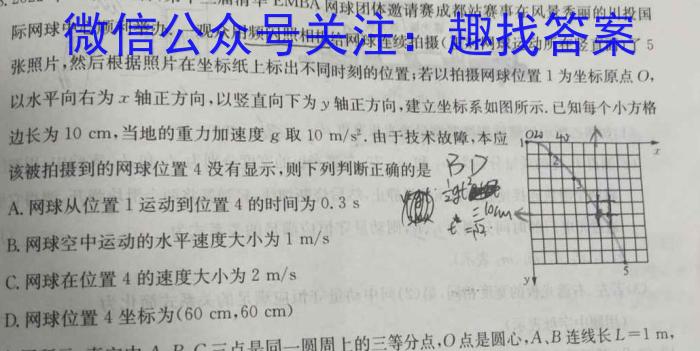 2022 清华EMBA网球团体邀请赛成都站赛事在风景秀丽的川投国
际网球中心顺利举办. 现 频闪照相机给网球连续拍摄 了5
微信公众号关注:趣找答案
张照片,然后根据照片在坐标纸上标出不同时刻的位置;若以拍摄网球位置1为坐标原点O,
以水平向右为x轴正方向,以竖直向下为y轴正方向,建立坐标系如图所示. 已知每个小方格
边长为10 cm,当地的重力加速度g取10 m/s². 由于技术故障,本应
该被拍摄到的网球位置4没有显示,则下列判断正确的是
BD
A. 网球从位置1运动到位置4的时间为0.3 s
=10cm
B. 网球空中运动的水平速度大小为1 m/s
C. 网球在位置4的速度大小为2 m/s
D. 网球位置4坐标为(60 cm,60 cm)
1
x
2
5
y
A、B、C三点是同一圆周上的三等分点,O点是圆心,A、B连线长L=1 m,